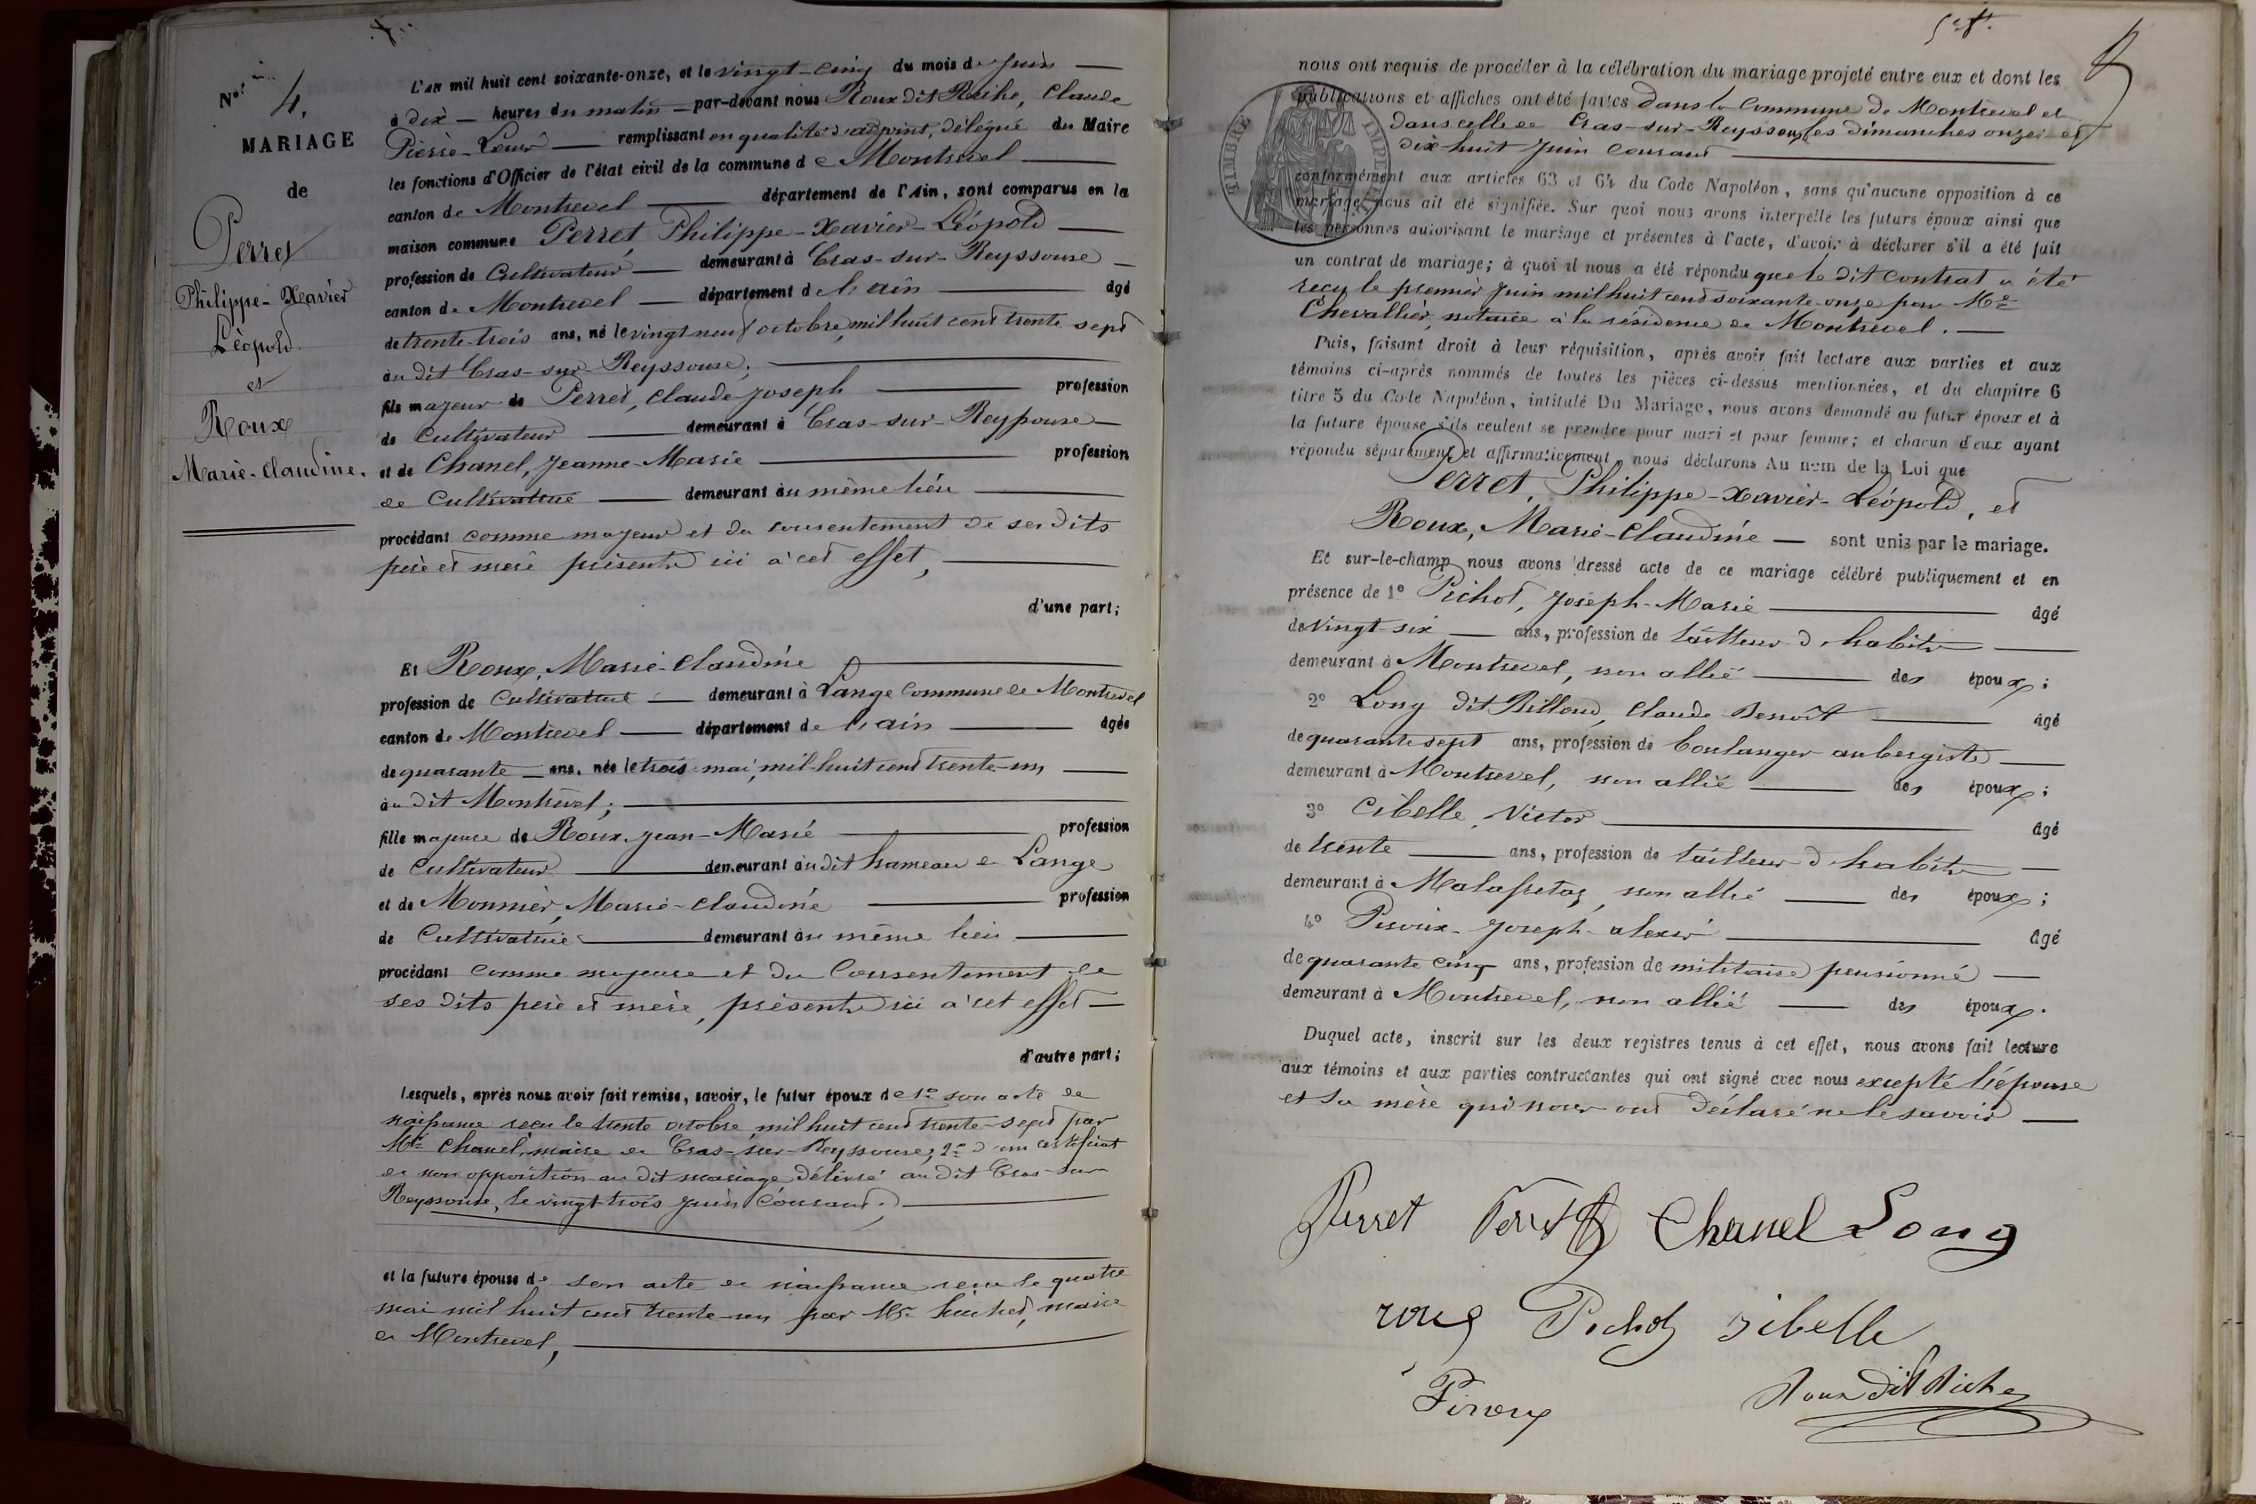 N.º 4.
MARIAGE
de
Perret
Philippe-Xavier
Léopold
et
Roux
Marie-Claudine.
L'an mil huit cent soixante-onze, et le vingt-cinq du mois de juin
à dix heures du matin par-devant nous Roux dit Riche, Claude
Pierre-Louis remplissant en qualité d'adjoint, délégué du Maire
les fonctions d'Officier de l'état civil de la commune de Montrevel
canton de Montrevel département de l'Ain, sont comparus en la
maison commune Perret Philippe-Xavier-Léopold
profession de Cultivateur demeurant à Cras-sur-Reyssouse
canton de Montrevel département de l'ain âgé
de trente-trois ans, né le vingt neuf octobre, mil huit cent trente sept
au dit Cras-sur-Reyssouse;
fils majeur de Perret, Claude-Joseph profession
de Cultivateur demeurant à Cras-sur-Reyssouse
et de Chanel, Jeanne-Marie profession
de Cultivatrice demeurant au même lieu
procédant comme majeur et du consentement de ses dits
père et mère présents ici à cet effet,
d'une part;
Et Roux, Marie-Claudine
profession de Cultivatrice demeurant à Lange commune de Montrevel
canton de Montrevel département de l'ain âgée
de quarante ans, née le trois mai, mil-huit cent trente-un
au dit Montrevel;
fille majeure de Roux, Jean-Marie profession
de Cultivateur demeurant au dit hameau de Lange
et de Monnier, Marie-Claudine profession
de Cultivatrice demeurant au même lieu
procédant comme majeure et du consentement de
ses dits père et mère, présents ici à cet effet
d'autre part;
Lesquels, après nous avoir fait remise, savoir, le futur époux de 1º son acte de
naissance reçu le trente octobre mil huit cent trente-sept par
Mr Chanel, maire de Cras-sur-Reyssouse; 2º d'un certificat
de non opposition au dit mariage délivré au dit Cras-sur
Reyssouse, le vingt-trois juin courant;
et la future épouse de son acte de naissance reçu le quatre
mai mil huit cent trente-un par Mr maire
de Montrevel,
nous ont requis de procéder à la célébration du mariage projeté entre eux et dont les
publications et affiches ont été faites dans la Commune de Montrevel et
dans celle de Cras-sur-Reyssouse, les dimanches onze et
dix-huit juin courant
conformément aux articles 63 et 64 du Code Napoléon, sans qu'aucune opposition à ce
mariage nous ait été signifiée. Sur quoi nous avons interpellé les futurs époux ainsi que
les personnes autorisant le mariage et présentes à l'acte, d'avoir à déclarer s'il a été fait
un contrat de mariage; à quoi il nous a été répondu que le dit contrat a été
reçu le premier juin mil huit cent soixante-onze par Me
Chevallier, notaire à la résidence de Montrevel.
Puis, faisant droit à leur réquisition, après avoir fait lecture aux parties et aux
témoins ci-après nommés de toutes les pièces ci-dessus mentionnées, et du chapitre 6
titre 5 du Code Napoléon, intitulé Du Mariage, nous avons demandé au futur époux et à
la future épouse s'ils veulent se prendre pour mari et pour femme; et chacun d'eux ayant
répondu séparément et affirmativement, nous déclarons Au nom de la Loi que
Perret, Philippe-Xavier-Léopold, et
Roux, Marie-Claudine sont unis par le mariage.
Et sur-le-champ nous avons dressé acte de ce mariage célébré publiquement et en
présence de 1º Pichot, Joseph-Marie âgé
de vingt-six ans, profession de tailleur d'habits
demeurant à Montrevel, non allié des époux;
2º Long dit Billoud, Claude Benoît âgé
de quarante sept ans, profession de boulanger aubergiste
demeurant à Montrevel, non allié des époux;
3º Cibelle, Victor âgé
de trente ans, profession de tailleur d'habits
demeurant à Malafretaz, non allié des époux;
4º Piroux Joseph-alexis âgé
de quarante cinq ans, profession de militaire pensionné
demeurant à Montrevel, non allié des époux.
Duquel acte, inscrit sur les deux registres tenus à cet effet, nous avons fait lecture
aux témoins et aux parties contractantes qui ont signé avec nous excepté l'épouse
et sa mère qui nous ont déclaré ne le savoir
Perret Perret Chanel Long
roux Pichot Sibelle
Piroux Roux dit Riche
TIMBRE IMPERIAL